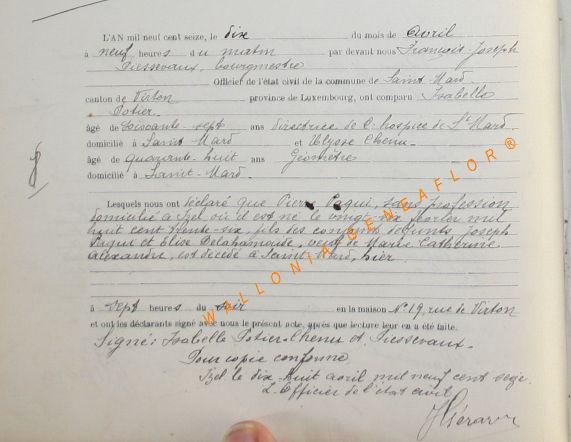 L'AN mil neuf cent seize, le dix du mois de avril
à neuf heures du matin par devant nous François-Joseph
Piessevaux, bourgmestre
Officier de l'état civil de la commune de Saint-Mard
canton de Virton province de Luxembourg, ont comparu Isabelle
Potier
âgé de soixante-sept ans directrice de l'hospice de St Mard
domicilié à Saint-Mard et Ulysse Chenu
âgé de quarante huit ans Géomètre
domicilié à Saint-Mard.
Lesquels nous ont déclaré que Pierre Paqui, sans profession
domicilié à Izel où il est né le vingt-six février mil
huit cent trente-six, fils des conjoints défunts Joseph
Paqui et Elise Delahamaide, veuf de Marie Catherine
Alexandre, est décédé à Saint-Mard, hier
à sept heures du soir en la maison N° 19, rue de Virton
et ont les déclarants signé avec nous le présent acte, après que lecture leur en a été faite.
Signé: Isabelle Potier-Chenu et Piessevaux.
Pour copie conforme
Izel le dix-huit avril mil neuf cent seize.
L'Officier de l'état civil
WALLONIA GENEAFLOR ®